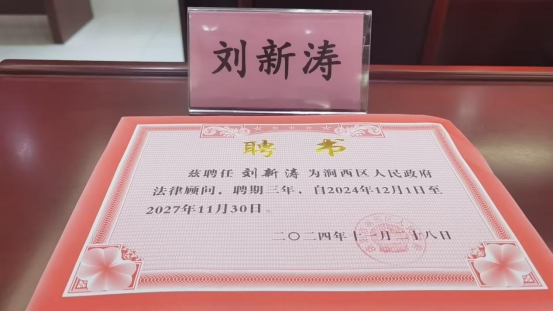 刘新涛
聘书
兹聘任 刘新涛 为涧西区人民政府
法律顾问，聘期三年，自2024年12月1日至
2027年11月30日。
二〇二四年十一月二十八日